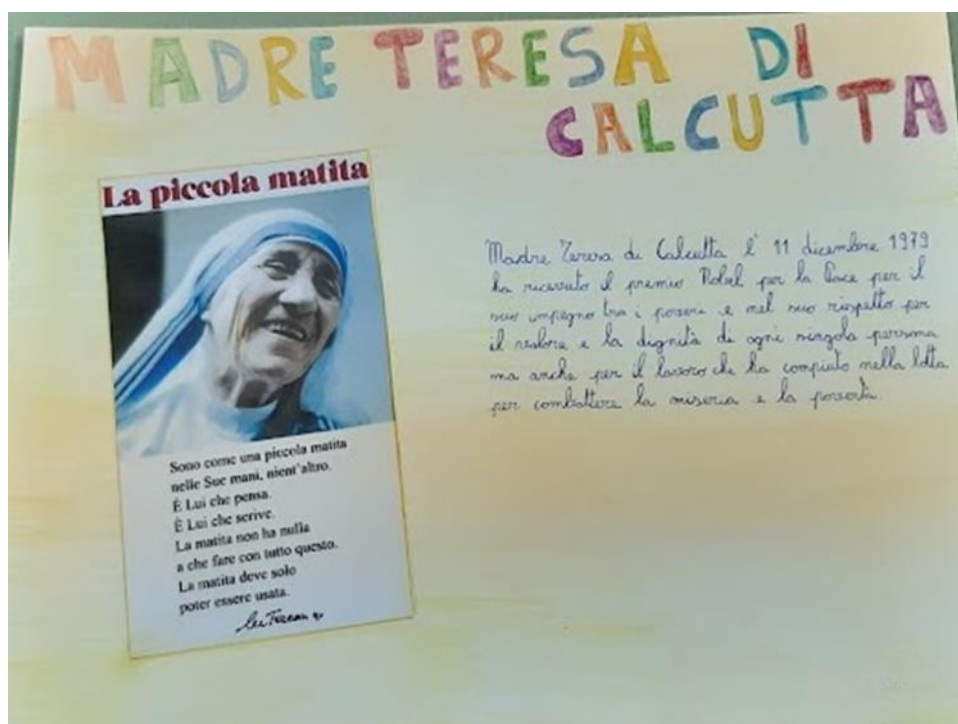 MADRE TERESA DI
CALCUTTA
La piccola matita
Sono come una piccola matita
nelle Sue mani, nient'altro.
È Lui che pensa.
È Lui che scrive.
La matita non ha nulla
a che fare con tutto questo.
La matita deve solo
poter essere usata.
Madre Teresa di Calcutta l' 11 dicembre 1979
ha ricevuto il premio Nobel per la Pace per il
suo impegno tra i poveri e nel suo rispetto per
il valore e la dignità di ogni singola persona
ma anche per il lavoro che ha compiuto nella lotta
per combattere la miseria e la povertà.